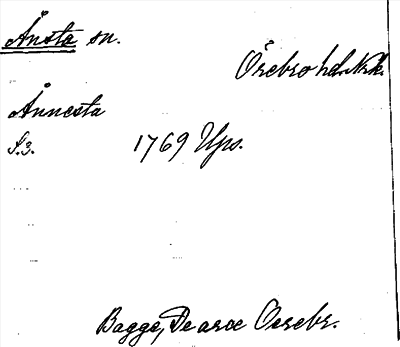 Ånsta sn.
Örebro hd. Nrk.
Ånnesta
S.3. 1769 Ups.
Bagge, De arce Oerebr.